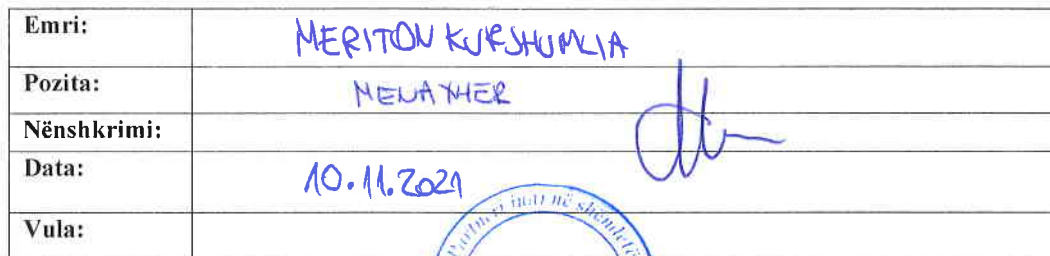 Emri: MERITON KURSHUMLIA
Pozita: MENAXHER
Nënshkrimi:
Data: 10.11.2021
Vula:
Partneri juaj në shëndetë